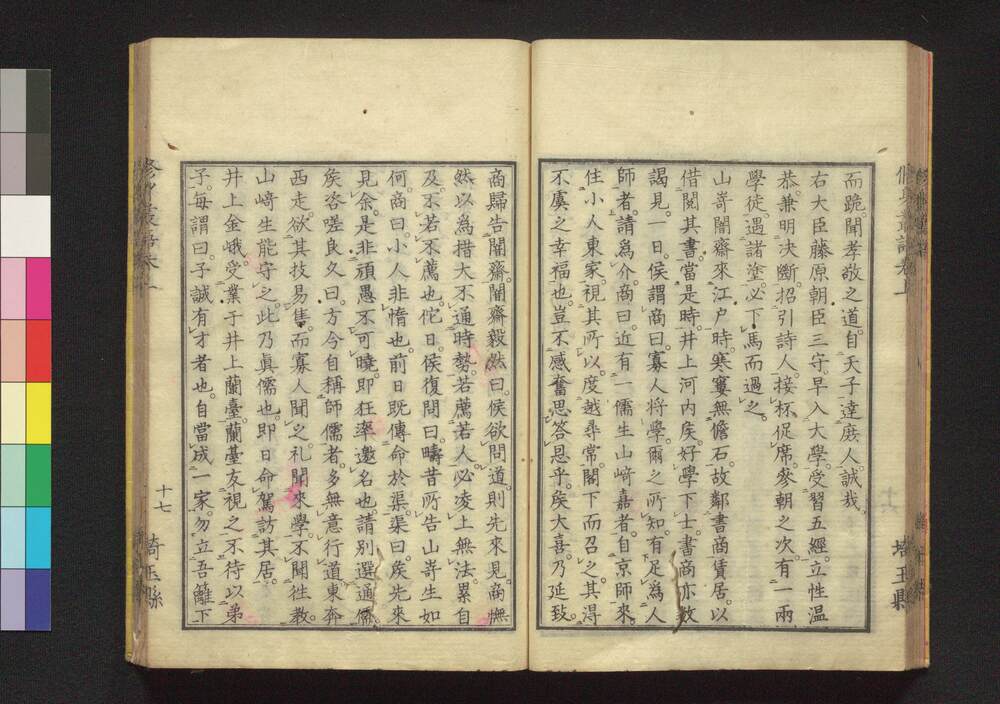 而跪聞孝敬之道自天子達庶人誠哉
右大臣藤原朝臣三守早入大學受習五經立性温
恭兼明決斷招引詩人接杯促席參朝之次有一兩
學徒遇諸塗必下馬而過之
山嵜闇齋來江戸時寒窶無儋石故鄰書商賃居以
借閲其書當是時井上河内矦好學下士書商亦數
謁見一日矦謂商曰寡人將學爾之所知有足爲人
師者請爲介商曰近有一儒生山﨑嘉者自京師來
住小人東家視其所以度越尋常閣下而召之其淂
不虞之幸福也豈不感奮思答恩乎矦大喜乃延致
商歸告闇齋闇齋毅然曰侯欲問道則先來見商憮
然以為措大不通時勢若薦若人必凌上無法累自
及不若不薦也佗日侯復問曰疇昔所告山嵜生如
何商曰小人非惰也前日既傳命於渠渠曰矦先來
見余是非頑愚不可曉即狂率邀名也請別選通儒
矦咨嗟良久曰方今自稱師儒者多無意行道東奔
西走欲其技易售而寡人聞之礼聞來學不聞徃教
山﨑生能守之此乃眞儒也即日命駕訪其居
井上金峨受業于井上蘭臺蘭臺友視之不待以弟
子毎謂曰子誠有才者也自當成一家勿立吾籬下
十七
埼玉縣